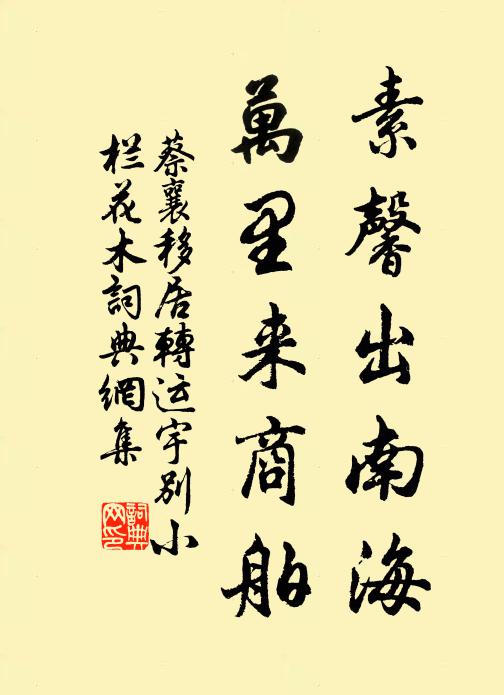 素馨出南海
萬里来商舶
蔡襄移居轉运宇别小
栏花木詞典網集
詞典
网印